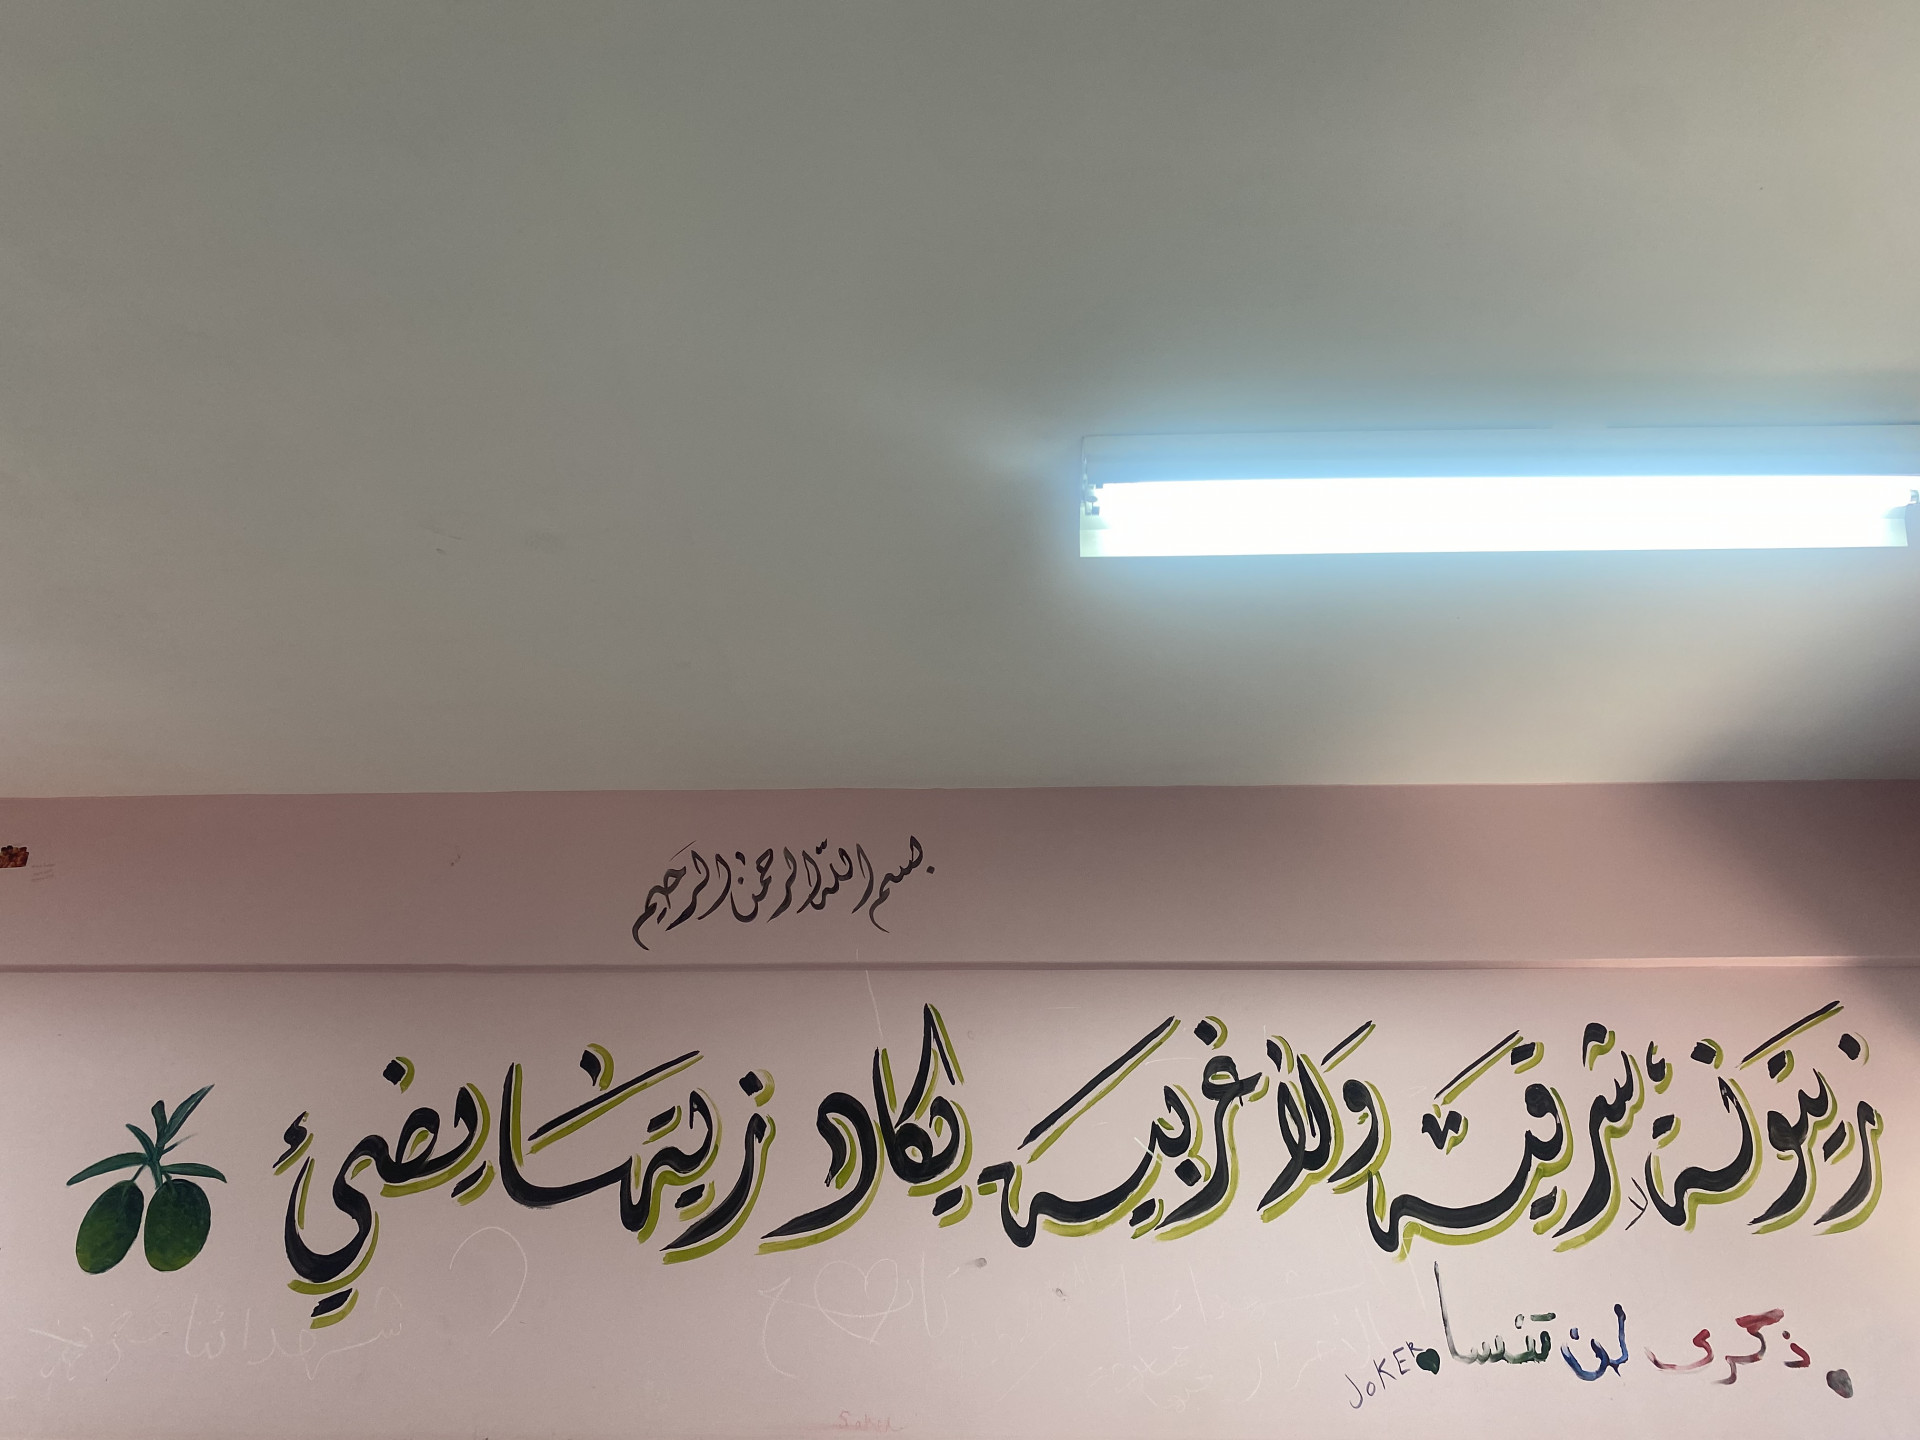 بسم الله الرحمن الرحيم
زيتونةٍ لا شرقية ولا غربية يكاد زيتها يضيئ
ذكرى لن تنسا
JOKER
شهدائنا